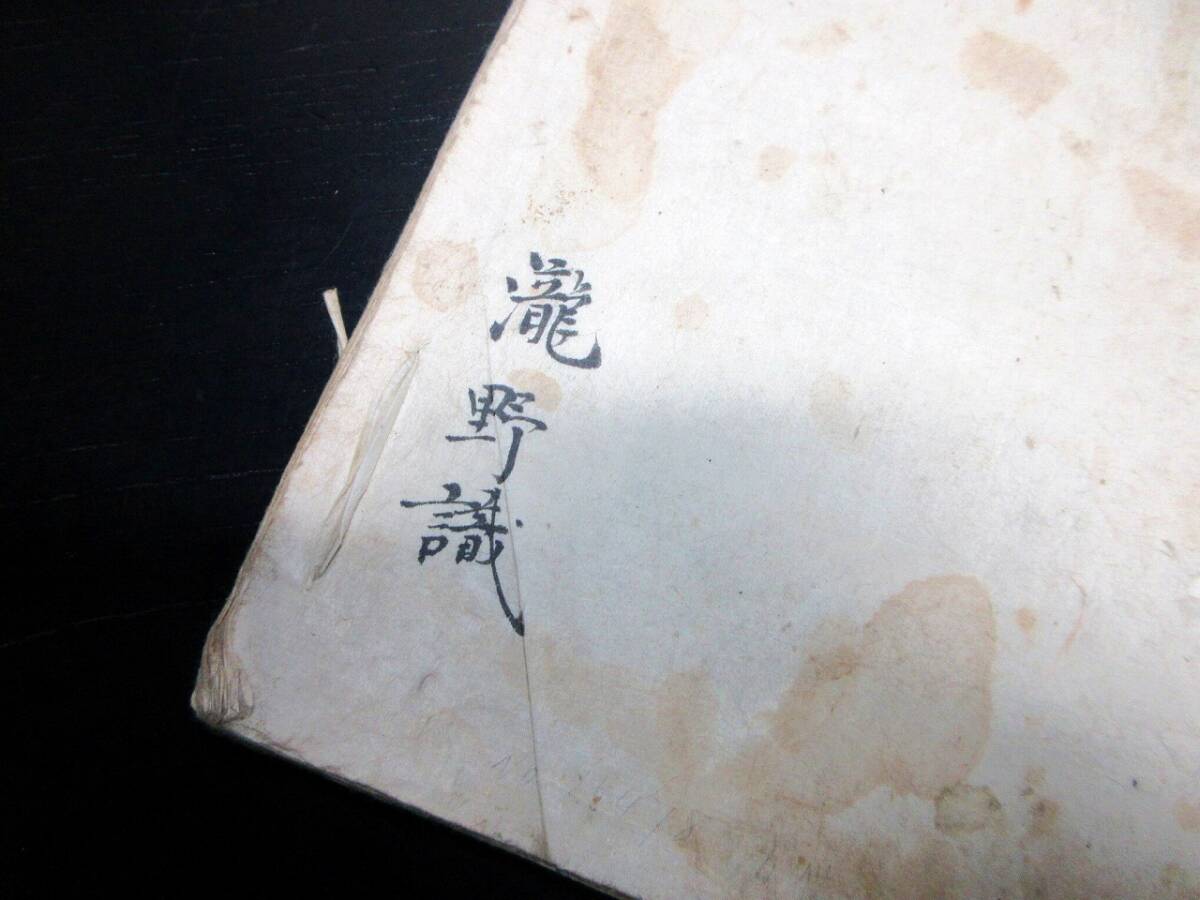 瀧野識